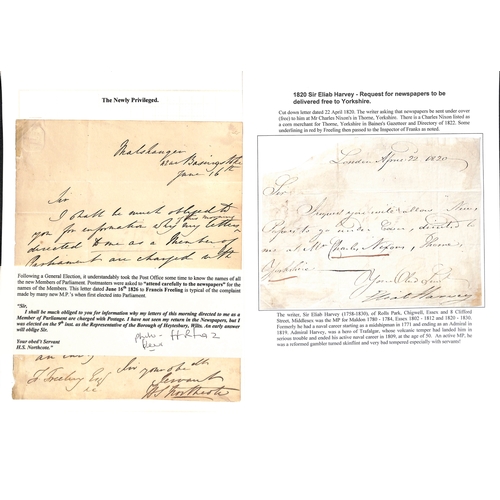 The Newly Privileged.
Malshanger
near Basingstoke
June 16th
Sir
I shall be much obliged to
you for information why my letters
this morning
directed to me as a Member of
Parliament are charged with
Following a General Election, it understandably took the Post Office some time to know the names of all
the new Members of Parliament. Postmasters were asked to "attend carefully to the newspapers" for
the names of Members. This letter dated June 16th 1826 to Francis Freeling is typical of the complaint
made by many new M.P.'s when first elected into Parliament.
"Sir,
I shall be much obliged to you for information why my letters of this morning directed to me as a
Member of Parliament are charged with Postage. I have not seen my return in the Newspapers, but I
was elected on the 9th inst. as the Representative of the Borough of Heytesbury, Wilts. An early answer
will oblige Sir.
Your obed't Servant
H.S. Northcote.
an early
Sir your obedt
F Freeling Esqr
Servant
HS Northcote
1820 Sir Eliab Harvey - Request for newspapers to be
delivered free to Yorkshire.
Cut down letter dated 22 April 1820. The writer asking that newspapers be sent under cover
(free) to him at Mr Charles Nixon's in Thorne, Yorkshire. There is a Charles Nixon listed
as a corn merchant for Thorne, Yorkshire in Baines's Gazetteer and Directory of 1822. Some
underlining in red by Freeling then passed to the Inspector of Franks as noted.
London April 22 1820
Sir
I request you will allow
Newspapers to go under Cover, directed to
me at Mr Charles Nixons, Thorne,
Yorkshire
Your Obed Servt
Eliab Harvey
The writer, Sir Eliab Harvey (1758-1830), of Rolls Park, Chigwell, Essex and 8 Clifford
Street, Middlesex was the MP for Maldon 1780 - 1784, Essex 1802 - 1812 and 1820 - 1830.
Formerly he had a naval career starting as a midshipman in 1771 and ending as an Admiral in
1819. Admiral Harvey, was a hero of Trafalgar, whose volcanic temper had landed him in
serious trouble and ended his active naval career in 1809, at the age of 50. An active MP, he
was a reformed gambler turned skinflint and very bad tempered especially with servants!